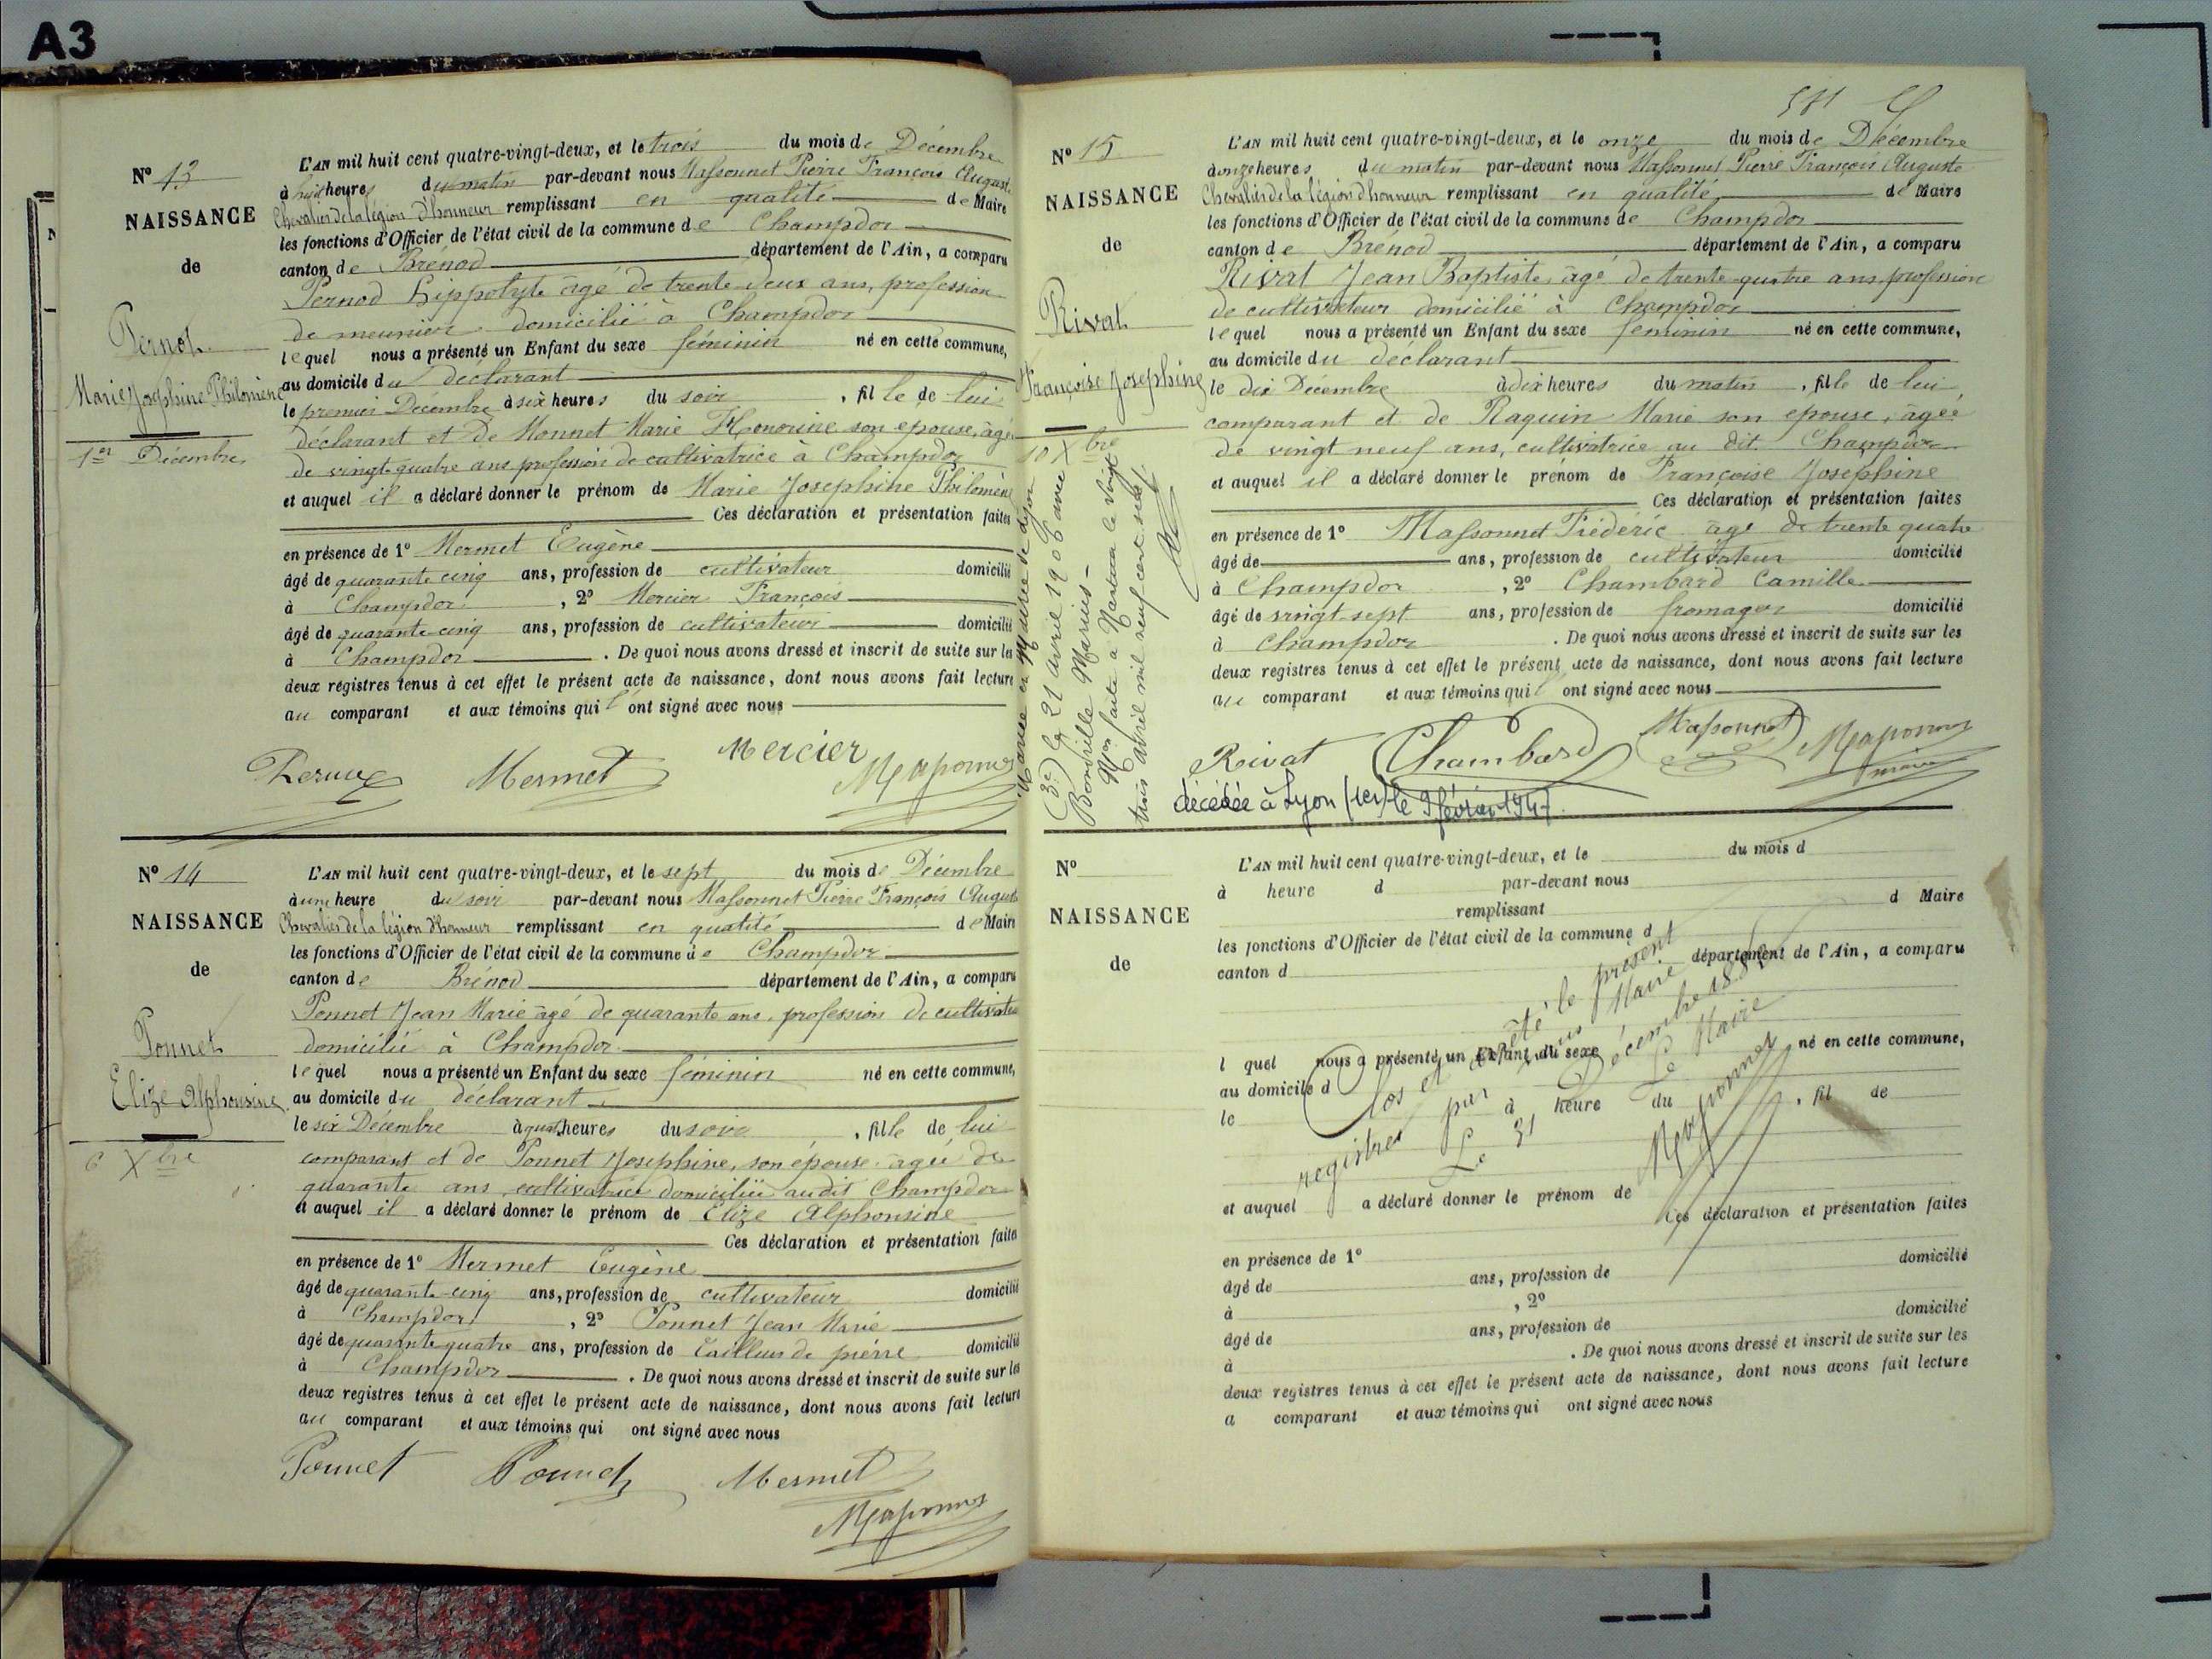 A3
Nº 13
NAISSANCE
de
Pernod
Marie Josephine Philomène
1er Décembre
L'AN mil huit cent quatre-vingt-deux, et le trois du mois de Décembre
à huit heures du matin par-devant nous Massonnet Pierre François Auguste
Chevalier de la légion d'honneur remplissant en qualité de Maire
les fonctions d'Officier de l'état civil de la commune de Champdor
canton de Brénod département de l'Ain, a comparu
Pernod Hippolyte âgé de trente deux ans, profession
de meunier domicilié à Champdor
lequel nous a présenté un Enfant du sexe féminin né en cette commune,
au domicile du déclarant
le premier Décembre à six heures du soir, fille de lui
déclarant et de Monnet Marie Honorine son épouse, âgée
de vingt quatre ans profession de cultivatrice à Champdor
et auquel il a déclaré donner le prénom de Marie Josephine Philomène
Ces déclaration et présentation faites
en présence de 1º Mermet Eugène
âgé de quarante cinq ans, profession de cultivateur domicilié
à Champdor, 2º Mercier François
âgé de quarante cinq ans, profession de cultivateur domicilié
à Champdor. De quoi nous avons dressé et inscrit de suite sur les
deux registres tenus à cet effet le présent acte de naissance, dont nous avons fait lecture
au comparant et aux témoins qui l'ont signé avec nous
Mermet Mercier Massonnet
Nº 14
NAISSANCE
de
Ponnet
Elize Alphonsine
6 Xbre
L'AN mil huit cent quatre-vingt-deux, et le sept du mois de Décembre
à une heure du soir par-devant nous Massonnet Pierre François Auguste
Chevalier de la légion d'honneur remplissant en qualité de Maire
les fonctions d'Officier de l'état civil de la commune de Champdor
canton de Brénod département de l'Ain, a comparu
Ponnet Jean Marie âgé de quarante ans, profession de cultivateur
domicilié à Champdor
lequel nous a présenté un Enfant du sexe féminin né en cette commune,
au domicile du déclarant
le six Décembre à quatre heures du soir, fille de lui
comparant et de Ponnet Josephine, son épouse âgée de
quarante ans, cultivatrice domiciliée audit Champdor
et auquel il a déclaré donner le prénom de Elize Alphonsine
Ces déclaration et présentation faites
en présence de 1º Mermet Eugène
âgé de quarante-cinq ans, profession de cultivateur domicilié
à Champdor, 2º Ponnet Jean Marie
âgé de quarante quatre ans, profession de tailleur de pierre domicilié
à Champdor. De quoi nous avons dressé et inscrit de suite sur les
deux registres tenus à cet effet le présent acte de naissance, dont nous avons fait lecture
au comparant et aux témoins qui ont signé avec nous
Ponnet Ponnet Mermet
Massonnet
581
Nº 15
NAISSANCE
de
Rivat
Françoise Josephine
10 Xbre
Mariée en Mairie de Lyon
(3e) le 21 avril 1906 avec
Bonville Marius -
Mon faite à Nantua le vingt
trois avril mil neuf cent six
L'AN mil huit cent quatre-vingt-deux, et le onze du mois de Décembre
à onze heures du matin par-devant nous Massonnet Pierre François Auguste
Chevalier de la légion d'honneur remplissant en qualité de Maire
les fonctions d'Officier de l'état civil de la commune de Champdor
canton de Brénod département de l'Ain, a comparu
Rivat Jean Baptiste, âgé de trente-quatre ans, profession
de cultivateur domicilié à Champdor
lequel nous a présenté un Enfant du sexe féminin né en cette commune,
au domicile du déclarant
le dix Décembre à dix heures du matin, fille de lui
comparant et de Raquin Marie son épouse, âgée
de vingt neuf ans, cultivatrice au dit Champdor
et auquel il a déclaré donner le prénom de Françoise Josephine
Ces déclaration et présentation faites
en présence de 1º Massonnet Frédéric âgé de trente quatre
âgé de ans, profession de cultivateur domicilié
à Champdor, 2º Chambard Camille
âgé de vingt-sept ans, profession de fromager domicilié
à Champdor. De quoi nous avons dressé et inscrit de suite sur les
deux registres tenus à cet effet le présent acte de naissance, dont nous avons fait lecture
au comparant et aux témoins qui l'ont signé avec nous
Rivat Chambard Massonnet Massonnet
maire
décédée à Lyon (1er) le 9 février 1947.
Nº
NAISSANCE
de
L'AN mil huit cent quatre-vingt-deux, et le du mois d
à heure d par-devant nous
remplissant d Maire
les fonctions d'Officier de l'état civil de la commune d
canton d département de l'Ain, a comparu
l quel nous a présenté un Enfant du sexe né en cette commune,
au domicile d
le à heure du, fil de
et auquel a déclaré donner le prénom de
Ces déclaration et présentation faites
en présence de 1º domicilié
âgé de ans, profession de
à, 2º domicilié
âgé de ans, profession de
à. De quoi nous avons dressé et inscrit de suite sur les
deux registres tenus à cet effet le présent acte de naissance, dont nous avons fait lecture
a comparant et aux témoins qui ont signé avec nous
Clos et arrêté le présent
registre par nous Maire
Le 31 Décembre 1882
Le Maire
Massonnet